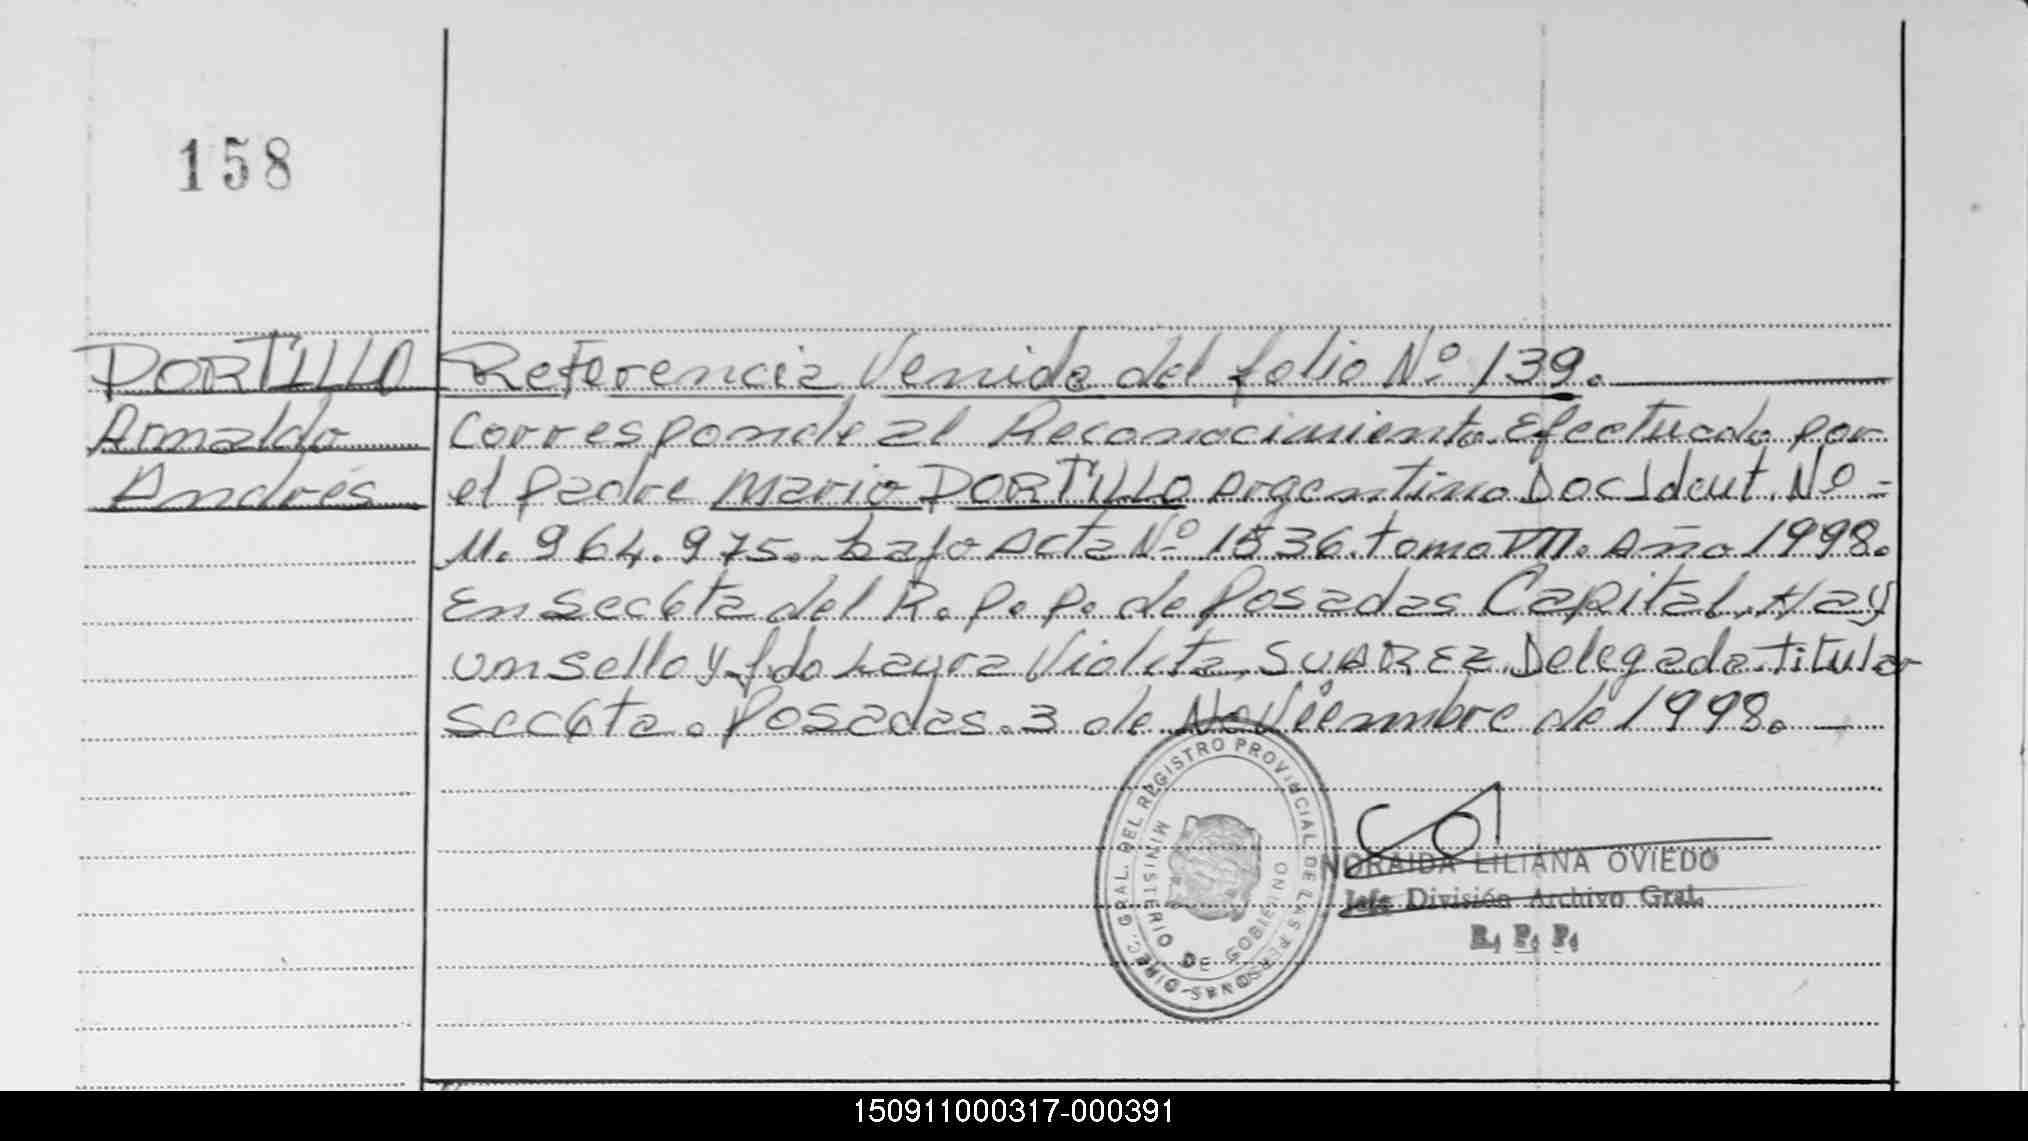 158
PORTILLO
Arnaldo
Andrés
Referencia Venida del folio Nº 139.
Corresponde al Reconocimiento Efectuado por
el padre Mario PORTILLO Argentino Doc Ident. Nº -
M. 964.975. bajo Acta Nº 1536. tomo VII. Año 1998.
En Secc 6ta del R. P. P. de Posadas Capital. Hay
un sello y fdo Laura Violeta SUAREZ Delegada Titular
Secc 6ta. Posadas. 3 de Noviembre de 1998.
DIREC. GRAL. DEL REGISTRO PROVINCIAL DE LAS PERSONAS
MINISTERIO DE GOBIERNO
NORAIDA LILIANA OVIEDO
Jefe División Archivo Gral.
R. P. P.
150911000317-000391